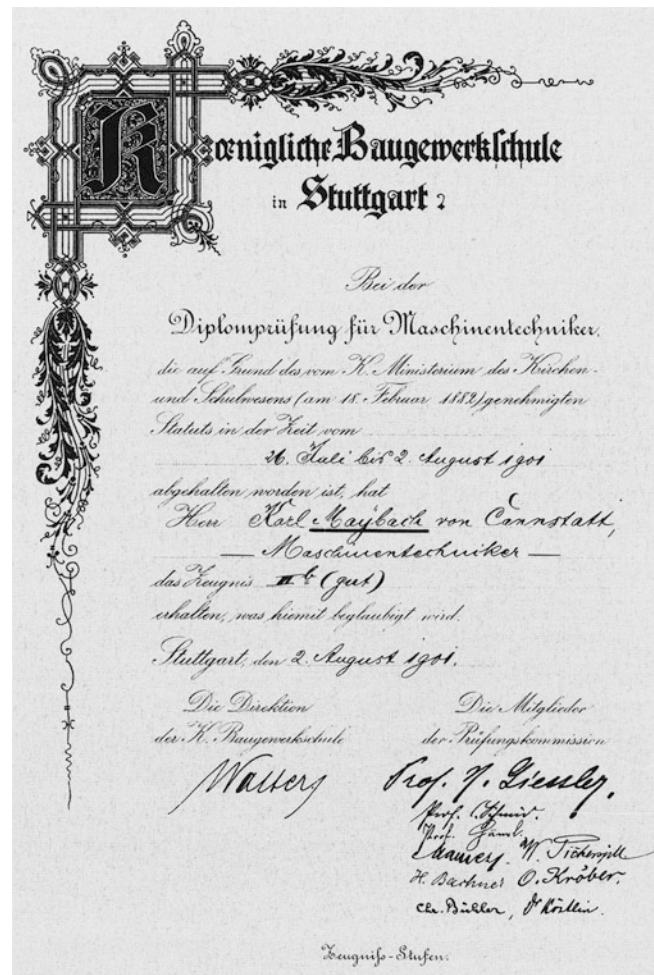 Kœnigliche Baugewerkschule
in Stuttgart
Bei der
Diplomprüfung für Maschinentechniker,
die auf Grund des vom K. Ministerium des Kirchen-
und Schulwesens (am 18. Februar 1882) genehmigten
Statuts in der Zeit vom
26. Juli bis 2. August 1901
abgehalten worden ist, hat
Herr Karl Maybach von Cannstatt,
— Maschinentechniker —
das Zeugnis (gut)
erhalten, was hiemit beglaubigt wird.
Stuttgart, den 2. August 1901.
Die Direktion
der K. Baugewerkschule
Die Mitglieder
der Prüfungskommission
Prof.
Prof. Schmid.
Prof.
H. Bachner O. Kröber.
Chr. Bühler, Dr Köstlin.
Zeugniß-Stufen.